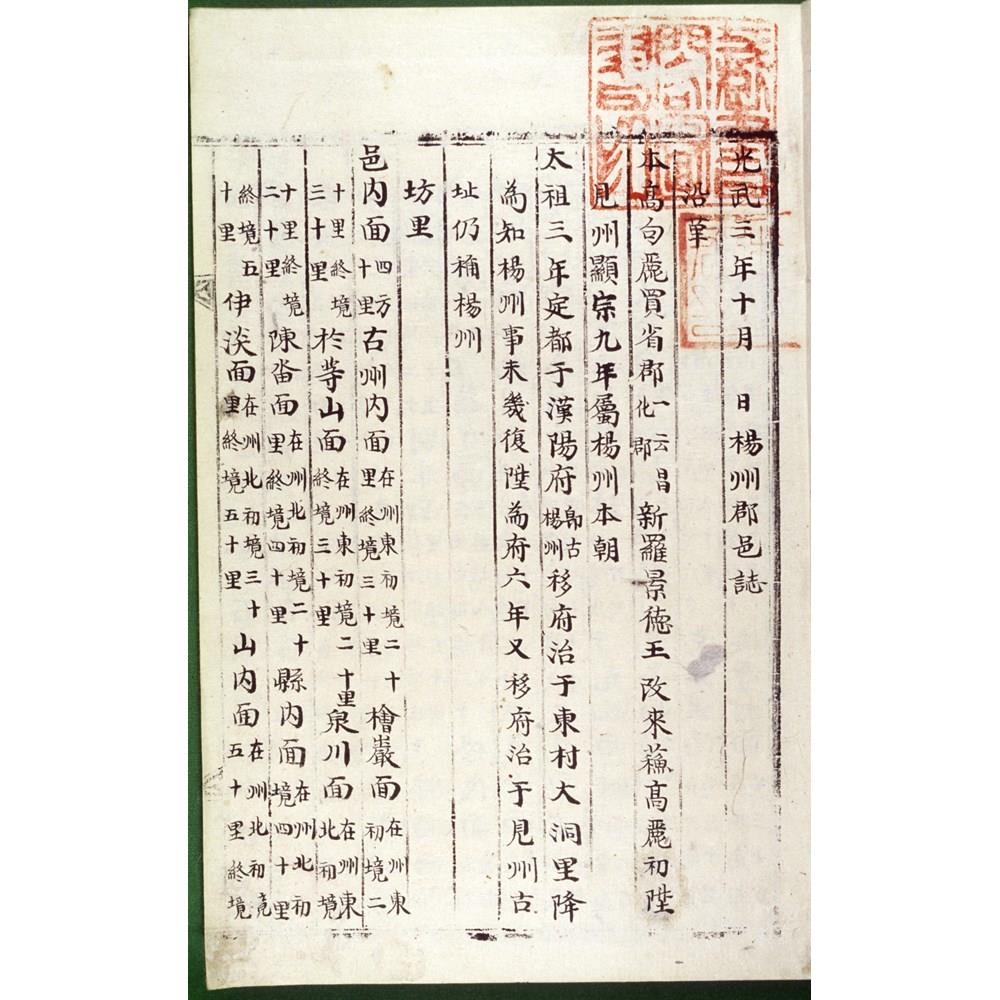 光武三年十月 日楊州郡邑誌
沿革
本高句麗買省郡一云昌化郡新羅景德王改來蘇高麗初陞
見州顯宗九年屬楊州本朝
太祖三年定都于漢陽府郎古楊州移府治于東村大洞里降
為知楊州事未幾復陞為府六年又移府治于見州古
址仍稱楊州
坊里
邑內面四方十里古州內面在州東初境二十里終境三十里檜巖面在州東初境二
十里終境三十里於等山面在州東初境二十里終境三十里泉川面在州東北初境
十里終境二十里陳畓面在州北初境二十里終境四十里縣內面在州北初境四十里
終境五十里伊淡面在州北初境三十里終境五十里山內面在州北初境五十里終境